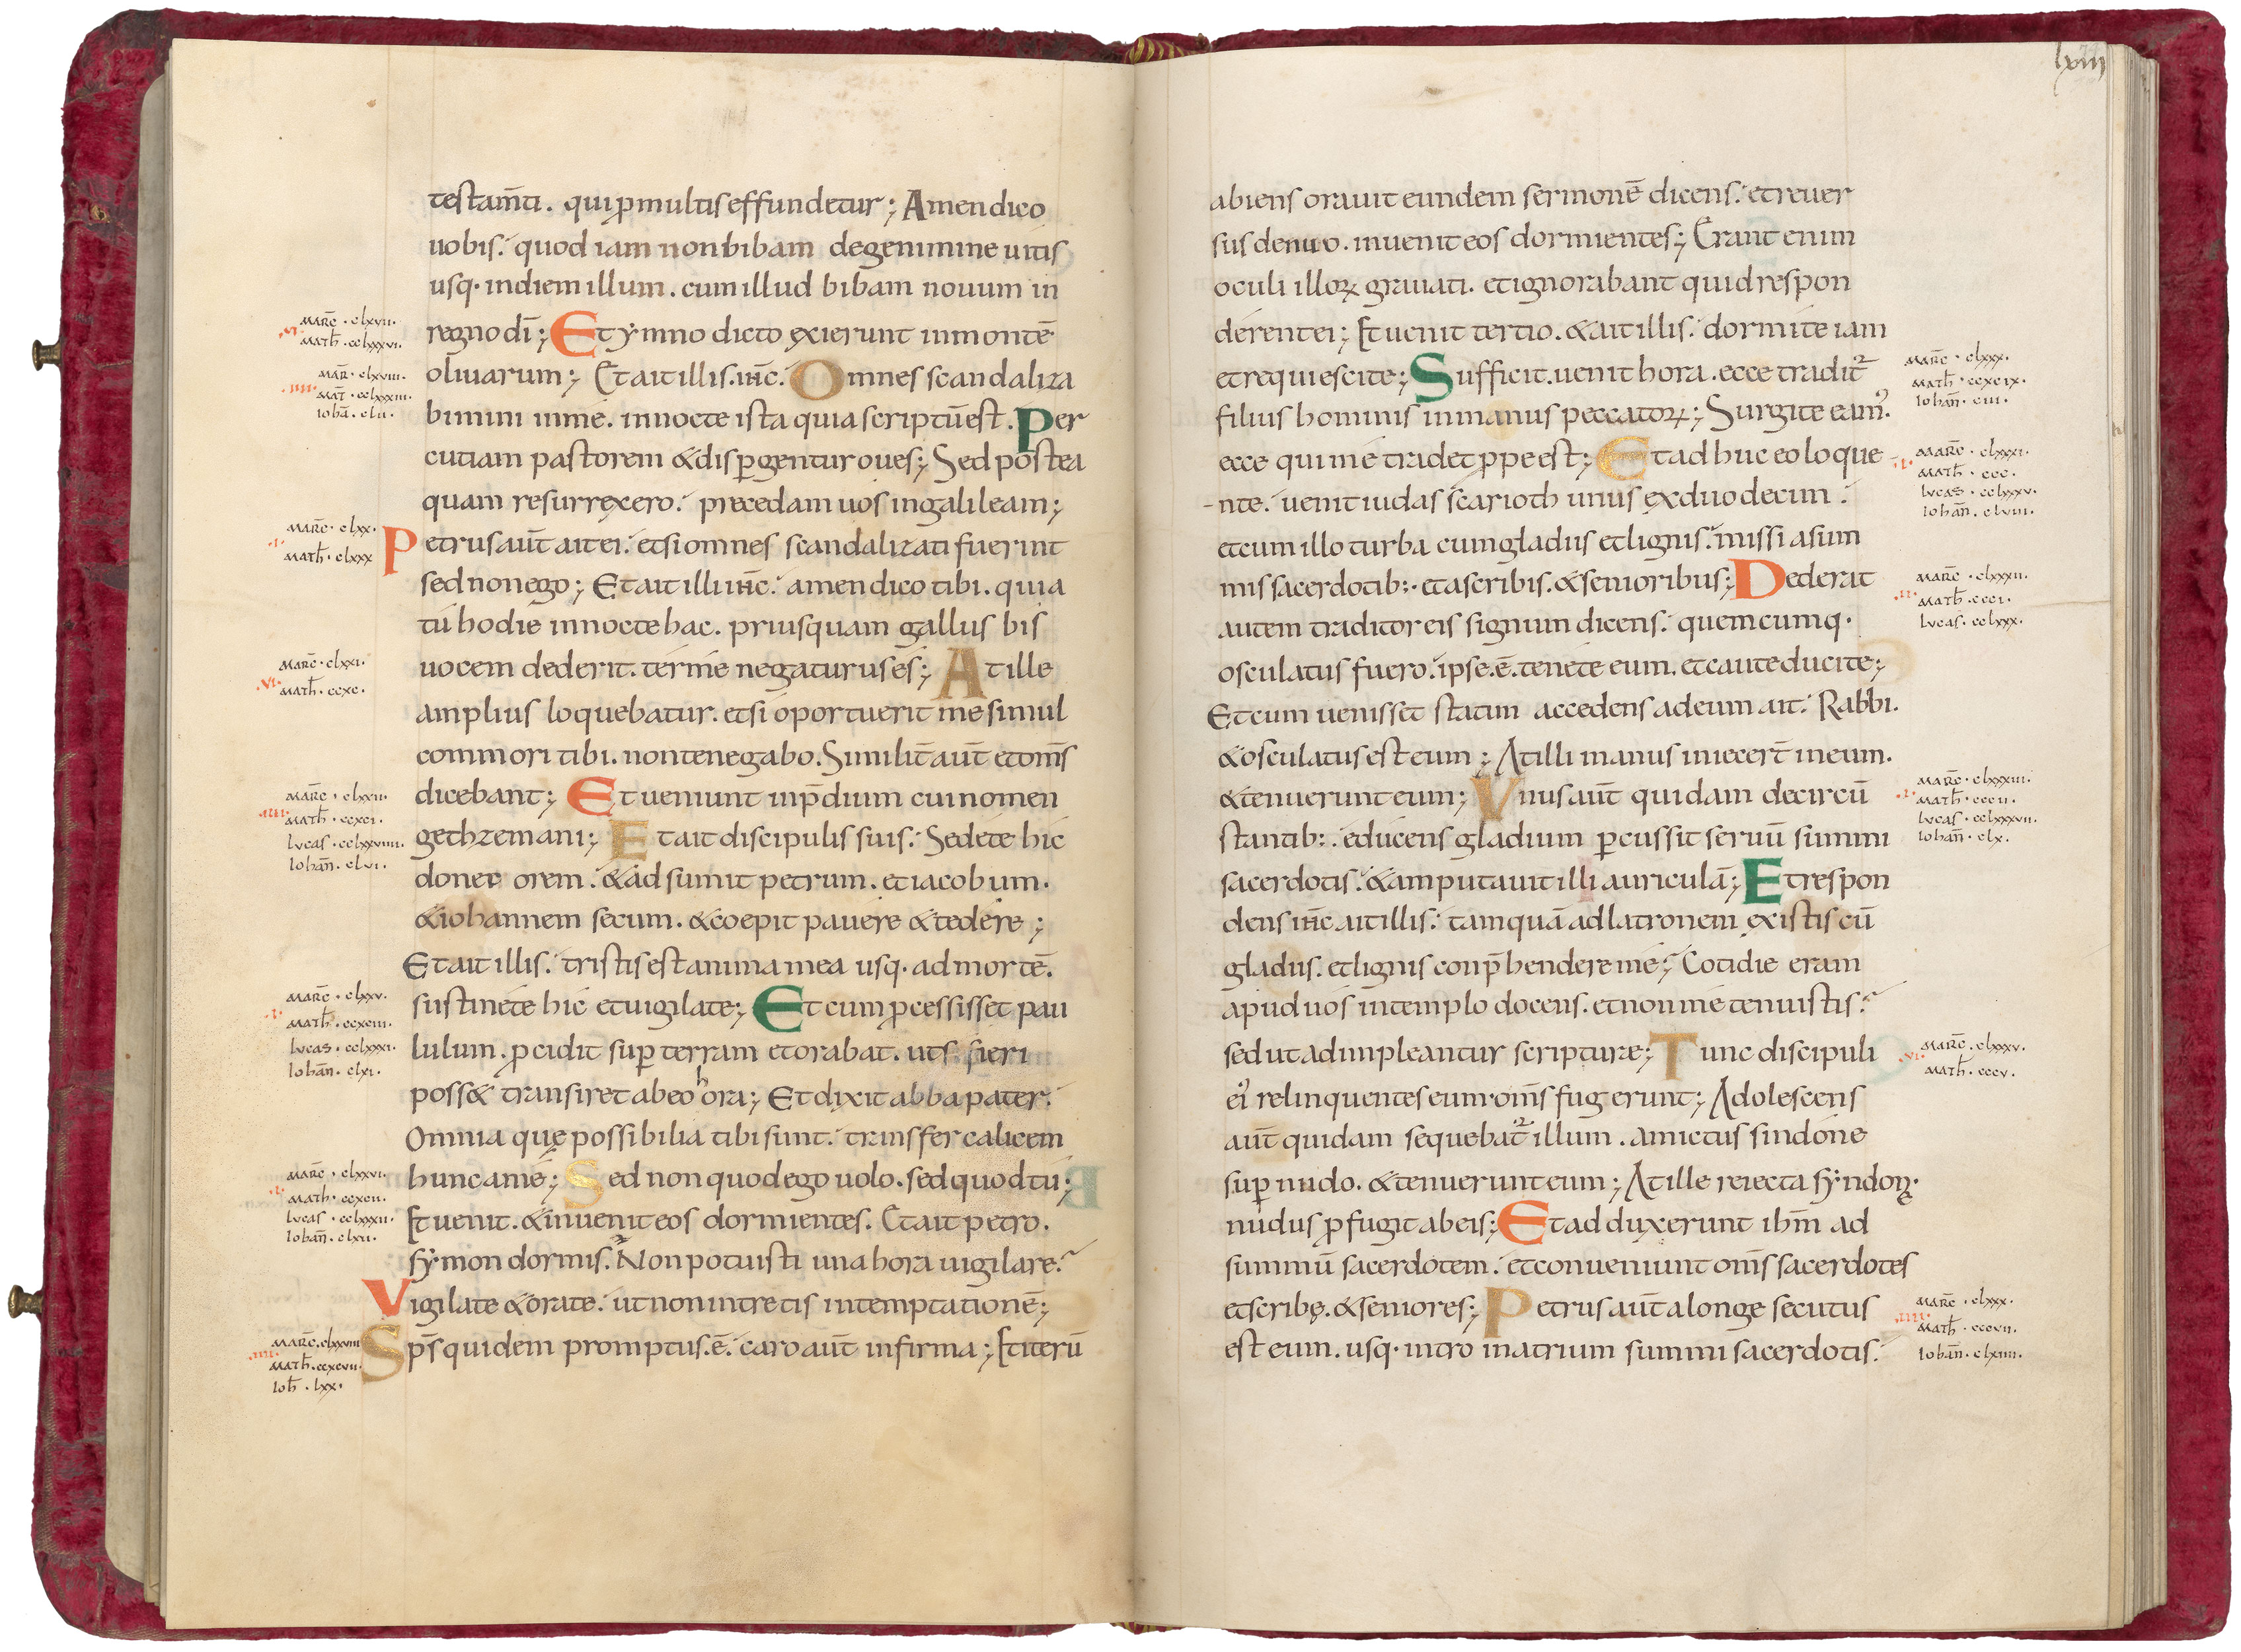 testam̄ti. qui ꝓ multis effundetur; Amen dico
uobis. quod iam non bibam de genimine uitis
usq· in diem illum. cum illud bibam nouum in
marc̄ · clxvii.
·vi·
math̄ · cclxxxvi.
regno dī; Et ymno dicto exierunt in montē
mar̄ · clxviii.
·iiii·
mat̄ · cclxxxiii.
iohā · clii.
oliuarum; Et ait illis. ih̄c. Omnes scandaliza
bimini in me. in nocte ista quia scriptū est. Per
cutiam pastorem & disꝑgentur oues; Sed postea
quam resurrexero. precedam uos in galileam;
marc̄ · clxx.
·i·
math̄ · clxxx
Petrus aut̄ ait ei. etsi omnes scandalizati fuerint
sed non ego; Et ait illi ih̄c. amen dico tibi. quia
tu hodie in nocte hac. priusquam gallus bis
marc̄ · clxxi.
·vi·
math̄ · ccxc.
uocem dederit. ter me negaturus es; At ille
amplius loquebatur. et si oportuerit me simul
commori tibi. non te negabo. Similit̄ aut̄ et om̄s
marc̄ · clxxii.
·iiii·
math̄ · ccxci.
lucas · cclxxviiii.
iohan̄ · clvi.
dicebant; Et ueniunt in p̄dium cui nomen
gethzemani; Et ait discipulis suis. Sedete hic
donec orem. & adsumit petrum. et iacobum.
& iohannem secum. & coepit pauere & tedere;
Et ait illis. tristis est anima mea usq· ad mortē.
marc̄ · clxxv.
·i·
math̄ · ccxciii.
lucas · cclxxxi.
iohān · clxi.
sustinete hic et uigilate; Et cum ꝓcessisset pau
lulum. ꝓcidit suꝑ terram et orabat. ut s. fieri
poss& transiret ab eo hora; Et dixit abba pater.
Omnia quę possibilia tibi sunt. transfer calicem
marc̄ · clxxvi.
·i·
math · ccxcii.
lucas · cclxxxii.
iohan̄ · clxii.
hunc a me; Sed non quod ego uolo. sed quod tu;
Et uenit. & inuenit eos dormientes. Et ait petro.
symon dormis. Non potuisti una hora uigilare.
Vigilate & orate. ut non intretis in temptationē;
marc̄ · clxxviii
·iiii·
math̄ · ccxcvii.
ioh̄ · lxx.
Sps̄ quidem promptus. ē. caro aut̄ infirma; Et iterū
lxiii
abiens orauit eundem sermonē dicens. et reuer
sus denuo. inuenit eos dormientes; Erant enim
oculi illoꝝ grauati. et ignorabant quid respon
derent ei; Et uenit tertio. & ait illis. dormite iam
et requiescite; Sufficit. uenit hora. ecce tradit᷑
marc̄ · clxxx.
math̄ · ccxcix.
iohan̄ · ciii.
filius hominis in manus peccatoꝝ; Surgite eam᾽.
ecce qui me tradet ꝓpe est; Et adhuc eo loque
·i·
marc̄ · clxxxi.
math̄ · ccc.
lucas · cclxxxv.
iohan̄ · clviii.
-nte. uenit iudas scarioth unus ex duodecim.
et cum illo turba cum gladiis et lignis. missi a sum
mis sacerdotib:· et a scribis. & senioribus; Dederat
·ii·
marc̄ · clxxxii.
math̄ · ccci.
lucas · cclxxx.
autem traditor eis signum dicens. quemcumq·
osculatus fuero. ipse. ē. tenete eum. et caute ducite;
Et cum uenisset statim accedens ad eum ait. Rabbi.
& osculatus est eum; At illi manus iniecert̄ in eum.
& tenuerunt eum; Vnus aut̄ quidam de circū
·i·
marc̄ · clxxxiii.
math̄ · cccii.
lucas · cclxxxvii.
iohan̄ · clx.
stantib:. educens gladium ꝑcussit seruū summi
sacerdotis. & amputauit illi auriculā; Et respon
dens ih̄c ait illis. tamquā ad latronem existis cū
gladiis. et lignis conp̄hendere me; Cotidie eram
apud uos in templo docens. et non me tenuistis.
sed ut adimpleantur scripturę; Tunc discipuli
·vi·
marc̄ · clxxxv.
math̄ · cccv.
ei᾽ relinquentes eum om̄s fugerunt; Adolescens
aut̄ quidam sequebat᷑ illum. amictus sindone
suꝑ nudo. & tenuerunt eum; At ille reiecta syndonę·
nudus ꝓfugit ab eis; Et adduxerunt ihm̄ ad
summū sacerdotem. et conueniunt om̄s sacerdotes
et scribę. & seniores; Petrus aut̄ a longe secutus
·iiii·
marc̄ · clxxx.
math̄ · cccvii.
iohan̄ · clxiiii.
est eum. usq· intro in atrium summi sacerdotis.